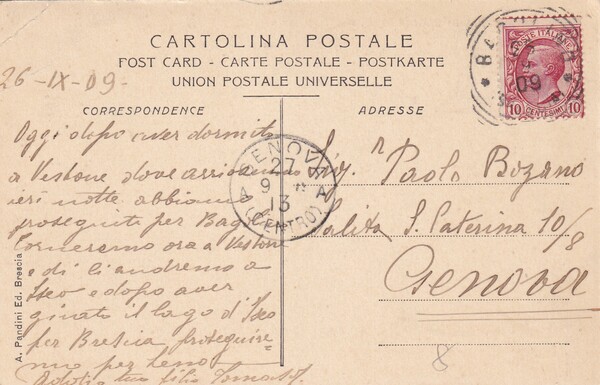 CARTOLINA POSTALE
POST CARD - CARTE POSTALE - POSTKARTE
UNION POSTALE UNIVERSELLE
26-IX-09-
CORRESPONDENCE
ADRESSE
POSTE ITALIANE
10 CENTESIMI 10
09
GENOVA
27
9
13
(CENTRO)
Oggi dopo aver dormito
a Vestone dove arrivammo
ieri notte abbiamo
proseguito per Bag
torneremo ora a Vestone
e di lì andremo a
Iseo e dopo aver
girato il lago d'Iseo
per Brescia proseguire-
mo per
tuo figlio Tomaso
Sig.r Paolo Bozano
Salita S. Caterina 10/8
Genova
8
A. Pandini Ed. Brescia